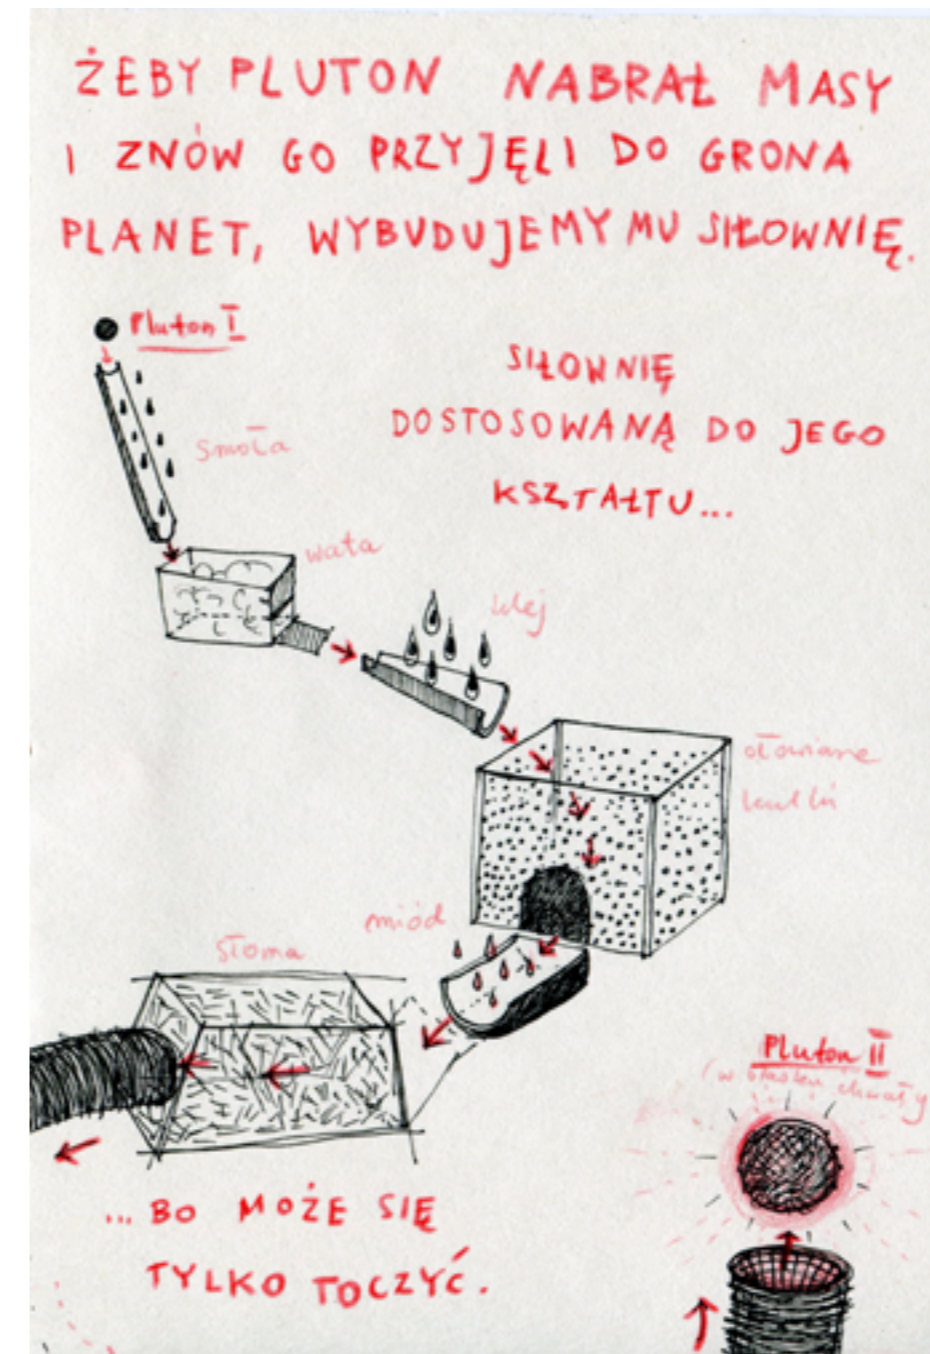 ŻEBY PLUTON NABRAŁ MASY
I ZNÓW GO PRZYJĘLI DO GRONA
PLANET, WYBUDUJEMY MU SIŁOWNIĘ.
Pluton I
SIŁOWNIĘ
DOSTOSOWANĄ DO JEGO
KSZTAŁTU...
smoła
wata
klej
ołowiane
kulki
miód
słoma
Pluton II
(w blasku chwały
... BO MOŻE SIĘ
TYLKO TOCZYĆ.